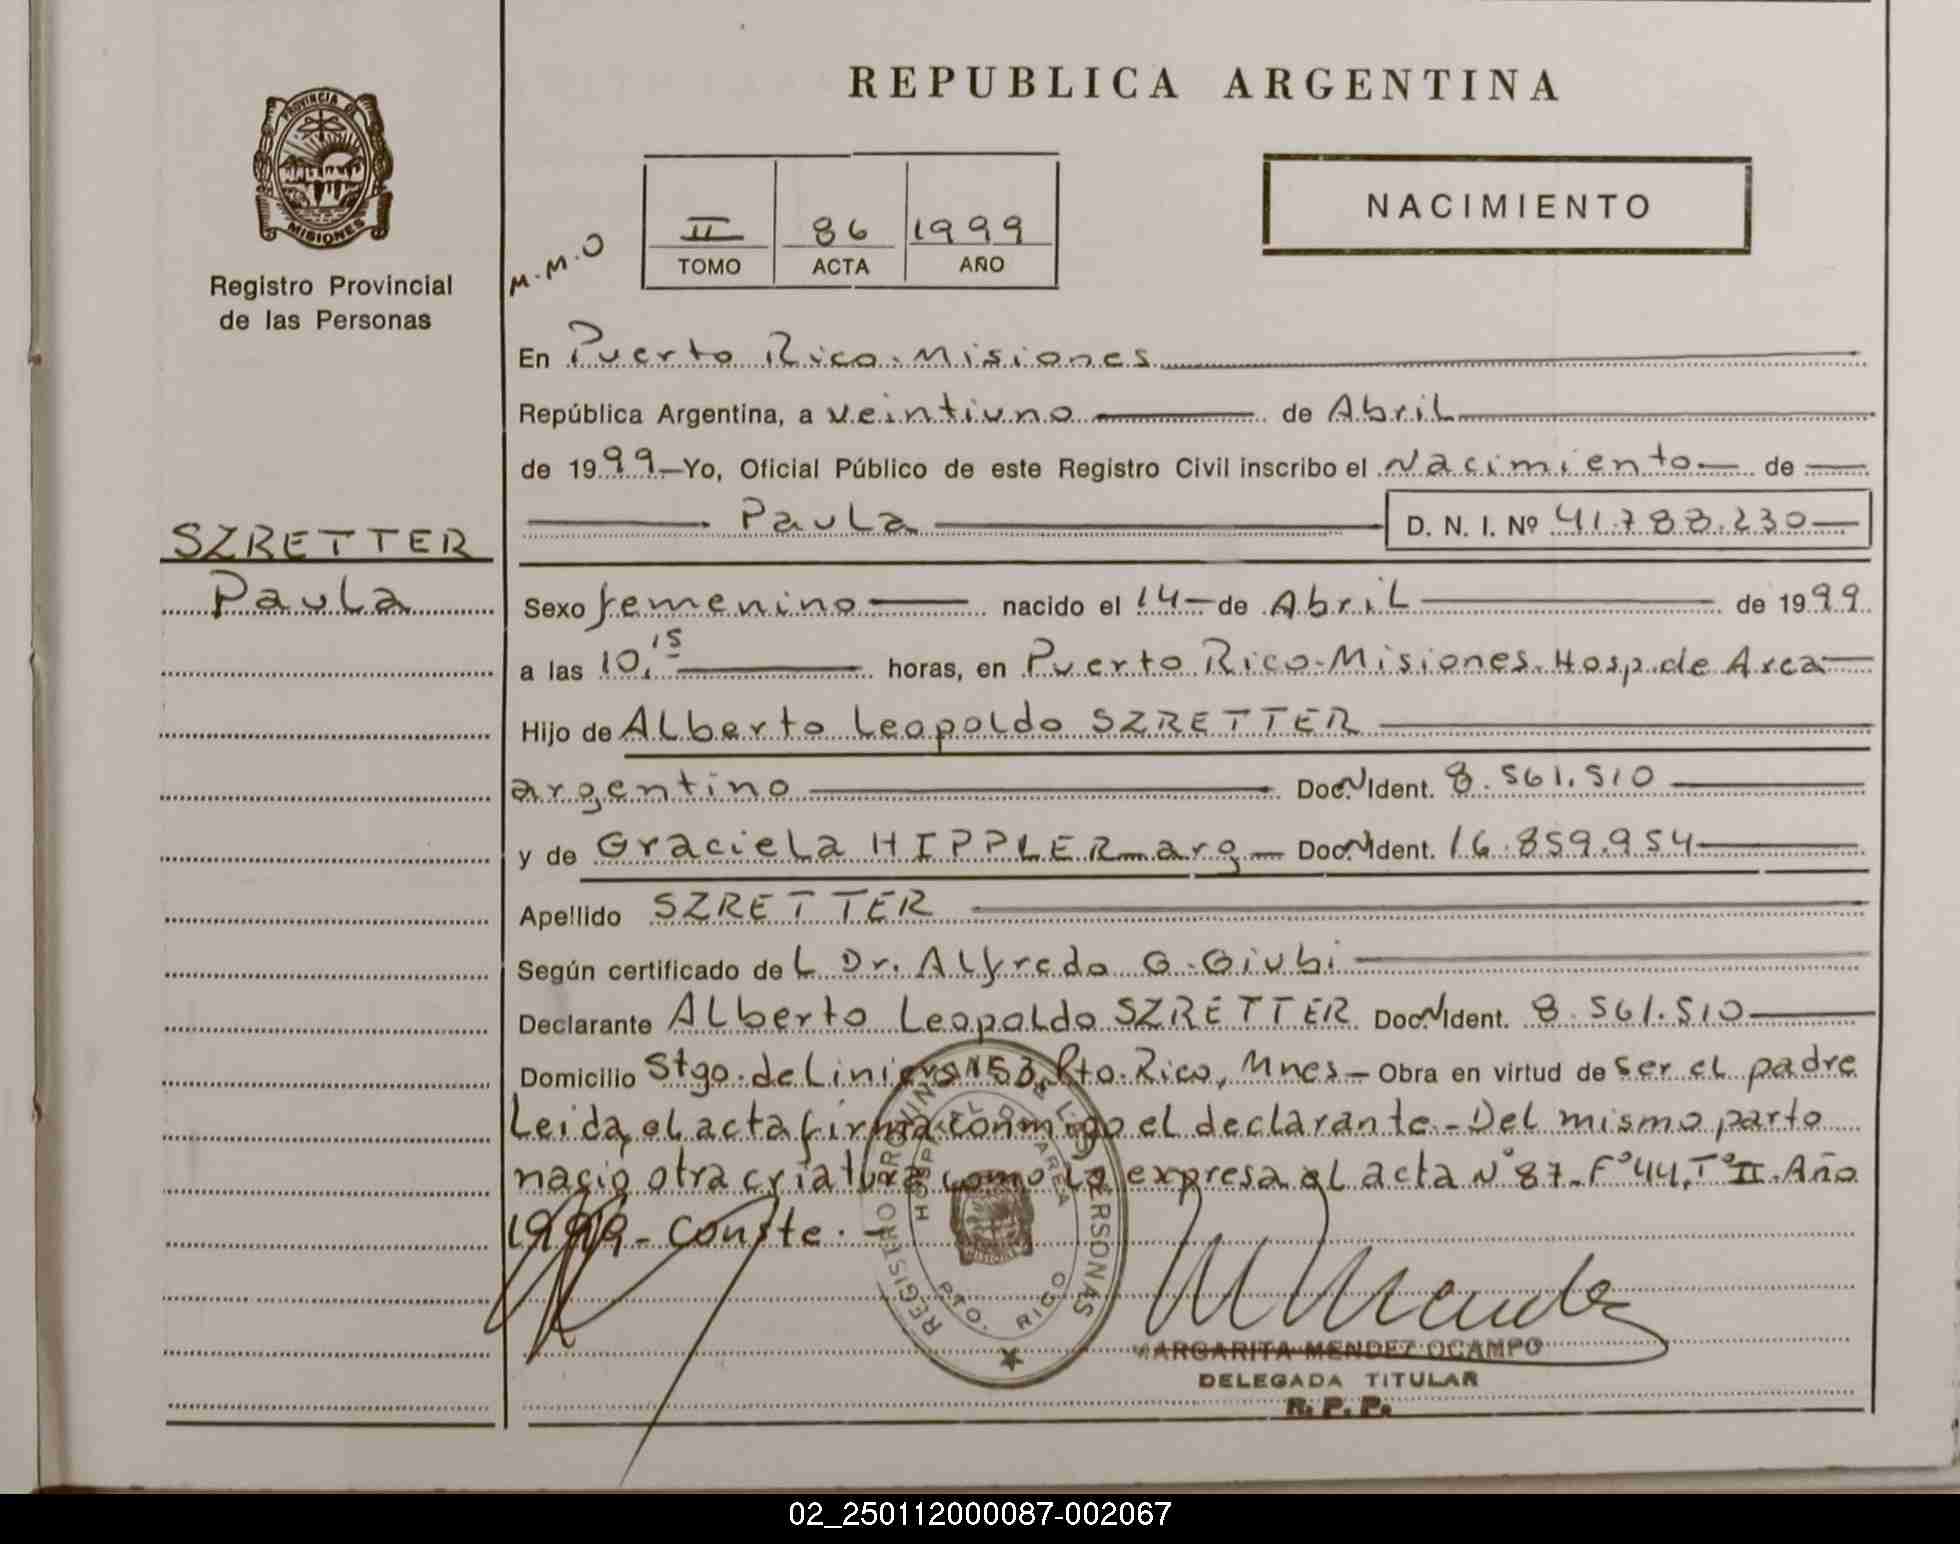 REPUBLICA ARGENTINA
PROVINCIA DE
MISIONES
Registro Provincial
de las Personas
M.M.O
II 86 1999
TOMO ACTA AÑO
NACIMIENTO
En Puerto Rico. Misiones
República Argentina, a veintiuno de Abril
de 1999 Yo, Oficial Público de este Registro Civil inscribo el Nacimiento de
Paula D. N. I. Nº 41.788.230
SZRETTER
Paula
Sexo femenino nacido el 14 de Abril de 1999
a las 10,15 horas, en Puerto Rico-Misiones. Hosp. de Area
Hijo de Alberto Leopoldo SZRETTER
argentino Doc.N Ident. 8.561.510
y de Graciela HIPPLER arg Doc.N Ident. 16.859.954
Apellido SZRETTER
Según certificado de L Dr. Alfredo G. Giubi
Declarante Alberto Leopoldo SZRETTER Doc.N Ident. 8.561.510
Domicilio Stgo. de Liniers 153 Pto. Rico, Mnes - Obra en virtud de ser el padre
Leida, el acta firma conmigo el declarante - Del mismo parto
nacio otra criatura como lo expresa el acta Nº 87. Fº 44, Tº II. Año
1999 - Conste. -
REGISTRO PROVINCIAL DE LAS PERSONAS
HOSPITAL DE AREA
PTO. RICO
M Mendez
MARGARITA MENDEZ OCAMPO
DELEGADA TITULAR
R. P. P.
02_250112000087-002067